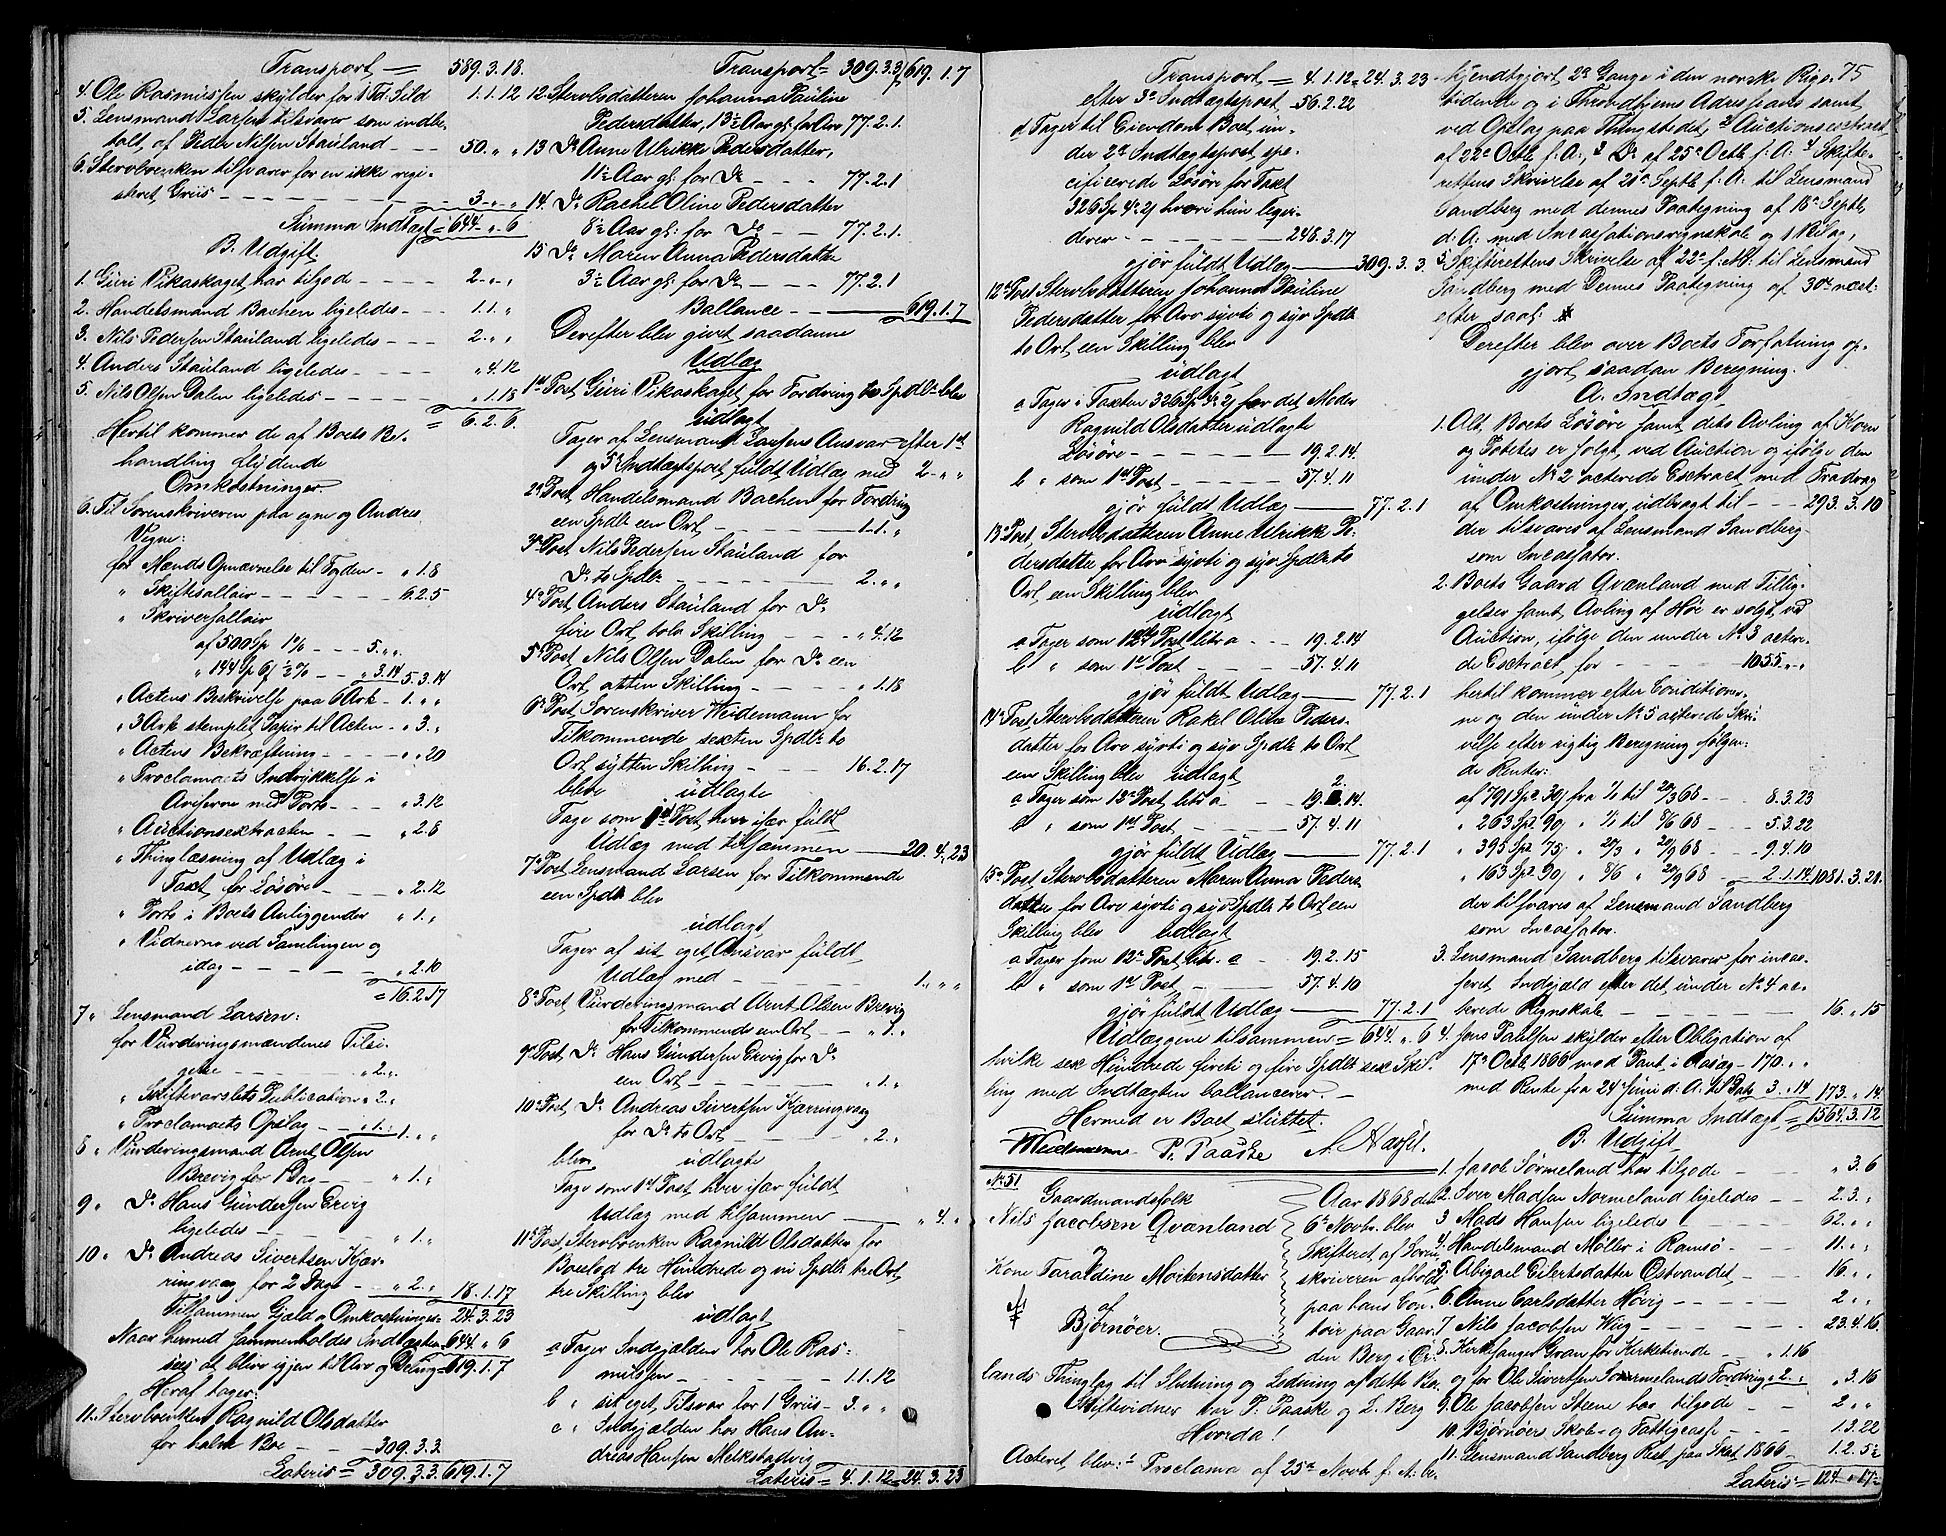 Transport = 589.3.18.
4. Ole Rasmussen skylder for 1 Td: Sild 1.1.12
5. Lensmand Larsen tilsvarer som indbe-
talt af Peder Nilsen Stauland - - - 50. „ „
6. Stervboenken tilsvarer for en ikke regi-
streret Griis - - - 3. „ „
Summa Indtægt = 644. „ 6
B. Udgift.
1. Guri Vikaskaget har tilgode - - - - 2. „ „
2. Handelsmand Bachen ligeledes - - - 1.1. „
3. Nils Pedersen Stauland ligeledes - - - 2. „ „
4. Anders Stauland ligeledes - - - - „ 4.12
5. Nils Olsen Dalen ligeledes - - - - „ 1.18
= 6.2.6.
Hertil kommer de af Boets Be-
handling flydende
Omkostninger.
6. Til Sorenskriveren paa egne og Andres
Vegne:
for Mænds Opnævnelse til Fogden - „ 1.8
„ Skiftesallair - - - - - 6.2.5
„ Skriversallair
af 500 Sp 1% - - - 5. „ „
„ 144 Sp 6 ß ½% - - „ 3.14 5.3.14
„ Actens Beskrivelse paa 6 Ark - 1. „ „
„ 3 Ark stemplet Papir til Acten - „ 3. „
„ Actens Bekræftning - - - „ „ 20
„ Proclamaets Indrykkelse i
Aviserne med Porto - - - „ 3.12
„ Auctionsextracten - - - „ 2.8
„ Thinglæsning af Udlæg i
Taxt for Løsøre - - - „ 2.12
„ Porto i Boets Anliggender „ 1. „
„ Vidnerne ved Samlingen og
idag - - - - - „ 2.10
= 16.2.17
7 „ Lensmand Larsen:
for Vurderingsmændenes Tilsi-
gelse - - - - „ 2. „
„ Skiftevarslets Publication „ 2. „
„ Proclamaets Opslag - - „ 1. „ 1. „ „
8 „ Vurderingsmand Arnt Olsen
Brevig for 1 Dag - - „ 1. „
9 „ Do Hans Gundersen Ervig
ligeledes - - - - „ 1. „
10 „ Do Andreas Sivertsen Kjær-
ringvaag for 2 Dage - - „ 2. „ 18.1.17
Tilsammen Gjæld & Omkostninger = 24.3.23
Naar hermed sammenholdes Indtægten 644. „ 6
sees at blive igjen til Arv og Deling = 619.1.7
Heraf tager:
11. Stervboenken Ragnild Olsdatter
for halve Boe - - - 309.3.3.
Lateris = 309.3.3. 619.1.7
Transport = 309.3.3 619.1.7
12. Stervbsdatteren Johanna Pauline
Pedersdatter, 13½ Aar gl: for Arv 77.2.1.
13 Do Anne Ulrikke Pedersdatter,
11½ Aar gl: for Do - - - 77.2.1
14. Do Rachel Oline Pedersdatter
8½ Aar gl: for Do - - 77.2.1.
15 Do Maren Anna Pedersdatter
3½ Aar gl: for Do - - - 77.2.1
Ballance - - 619.1.7
Derefter blev givet saadanne
Udlæg
1st Post, Guri Vikaskaget for Fordring to Spdlr blev
udlagt
Tager af Lensmand Larsens Ansvar efter 1st
og 5te Indtægtspost fuldt Udlæg med 2. „ „
2den Post, Handelsmand Bachen for Fordring
een Spdlr een Ort - - - - 1.1. „
3die Post Nils Pedersen Stauland for
Do to Spdlr - - - - 2. „ „
4de Post, Anders Stauland for Do
fire Ort tolv Skilling - - - „ 4.12
5te Post Nils Olsen Dalen for Do een
Ort atten Skilling - - - - „ 1.18
6te Post, Sorenskriver Weidemann for
Tilkommende sexten Spdlr to
Ort sytten Skilling - - - 16.2.17
bleve udlagte
Tage som 1st Post hver især fuldt
Udlæg med tilsammen - 20.4.23
7de Post Lensmand Larsen for Tilkommende
een Spdlr blev
udlagt
Tager af sit eget Ansvar fuldt
Udlæg med - - - - 1. „ „
8de Post Vurderingsmand Arnt Olsen Brevig
for Tilkommende een Ort - - „ 1. „
9de Post, Do Hans Gundersen Ervig for Do
een Ort - - - - „ 1. „
10de Post, Do Andreas Sivertsen Kjærringvaag
for Do to Ort - - - - „ 2. „
bleve udlagte
Tage som 1st Post hver især fuldt
Udlæg med tilsammen - „ 4. „
11te Post, Stervboenken Ragnild Olsdatter for
Boeslod tre Hundrede og ni Spdlr tre Ort
tre Skilling blev
udlagt
a Tager Indgjælden hos Ole Ras-
mussen - - - - - 1.1.12
b „ sit eget Tilsvar for 1 Griis - 3. „ „
c „ Indgjælden hos Hans An-
dreas Hansen Melkstadvig
Lateris = 4.1.12 = 24.3.23
Transport = 4.1.12 = 24.3.23
efter 3die Indtægtspost - 56.2.22
d Tager til Eiendom Boet un-
der 2den Indtægtspost spe-
cificerede Løsøre for Taxt
326 Sp 4 ß 2 ß hvori hun legvi-
derer - - - - - 248.3.17
gjør fuldt Udlæg - 309.3.3.
12te Post Stervbsdatteren Johanna Pauline
Pedersdatter for Arv sytti og syv Spdlr
to Ort een Skilling blev
udlagt
a Tager i Taxten 326 Sp for det Moder
Ragnild Olsdatter udlagte
Løsøre - - - - - 19.2.14.
b „ som 1st Post - - - - 57.4.11
gjør fuldt Udlæg - 77.2.1
13de Post, Stervbsdatteren Anne Ulrikke Pe-
dersdatter for Arv sytti og syv Spdlr to
Ort, een Skilling blev
udlagt
a Tager som 12te Post litr a - - 19.2.14
b „ som 1st Post - - - 57.4.11
gjør fuldt Udlæg - 77.2.1
14de Post, Stervbsdatteren Rakel Oline Peders-
datter for Arv sytti og syv Spdlr to Ort
een Skilling blev udlagt
a Tager som 13de Post, litr a - - 19.2.14.
b „ som 1st Post - - - 57.4.11
gjør fuldt Udlæg - 77.2.1
15de Post Stervbsdatteren Maren Anna Peders-
datter for Arv sytti og syv Spdlr to Ort een
Skilling blev udlagt
a Tager som 12te Post, litr. a - 19.2.15
b „ som 1st Post, - - - 57.4.10
gjør fuldt Udlæg - 77.2.1
Udlæggene tilsammen = 644. „ 6
hvilke sex Hundrede fireti og fire Spdlr sex Skil-
ling med Indtægten ballancerer. -
Hermed er Boet sluttet.
Weidemann P. Paaske A. Aarset.
No 51
Gaardmandsfolk
Nils Jacobsen Qvænland
og
Kone Taraldine Mortensdatter
af
Bjørnøer.
Aar 1868 den
6te Novbr. blev
Skifteret af Soren-
skriveren afholdt
paa hans Con-
toir paa Gaar-
den Berg i Ør-
lands Thinglag til Slutning og Lodning af dette Bo
Skiftevidner var P. Paaske og L. Berg
Hvorda!
Acteret blev: 1 Proclama af 25de Novbr f. A. be-
kjendtgjort 2de Gange i den norske Rigs- 75
tidende og i Throndhjems Adresseavis samt
ved Opslag paa Thingstedet, 2 Auctionsextract
af 22de Octb. f. A:, 3 Do af 25de Octb. f. A: 4 Skifte-
rettens Skrivelse af 21de Septb. f. A: til Lensmand
Sandberg med dennes Paategning af 18de Septb.
d: A: med Incassationsregnskab og 1 Bilag,
5 Skifterettens Skrivelse af 22de f: M: til Lensmand
Sandberg med Dennes Paategning af 30te næst-
efter saal:
Derefter blev over Boets Forfatning op-
gjort saadan Beregning.
A. Indtægt
1. Alt Boets Løsøre samt dets Avling af Korn
og Potetes er solgt ved Auction og ifølge den
under No 2 acterede Extract med Fradrag
af Omkostninger udbragt til - - - 293.3.10
der tilsvares af Lensmand Sandberg
som Incassator.
2. Boets Gaard Qvænland med Tillig-
gelser samt Avling af Høe er solgt ved
Auction, ifølge den under No 3 acter-
de Extract, for - - - - - 1055. „ „
hertil kommer efter Conditioner-
ne og den under No 5 acterede Skri-
velse efter rigtig Beregning følgen-
de Renter:
af 791 Sp 30 ß fra 1/1 til 20/3 68 - - 8.3.23
„ 263 Sp 90 ß „ 1/1 til 8/6 68 - - 5.3.22
„ 395 Sp 75 ß „ 20/3 „ 20/9 68 - - 9.4.10
„ 163 Sp 90 ß „ 8/6 „ 20/9 68 - - 2.1.14 1081.3.21.
der tilsvares af Lensmand Sandberg
som Incassator.
3. Lensmand Sandberg tilsvarer for incas-
seret Indgjæld efter det under No 4 ac-
terede Regnskab - - - - - 16. „ 15
4. Jens Paulsen skylder efter Obligation af
17de Octb. 1866 mod Pant i Aasag - 170. „ „
med Rente fra 24 Juni d: A: til Dato 3. „ 14 173. „ 14
Summa Indtægt = 1564.3.12
B. Udgift
1. Jacob Sørmeland har tilgode - - - „ 3.6
2. Iver Madsen Normeland ligeledes - - 2.3. „
3 Mads Hansen ligeledes - - - 62. „ „
4. Handelsmand Møller i Ramsø - - - 11. „ „
5. Abigael Eilertsdatter Østvandet - - 16. „ „
6. Anne Carlsdatter Høvig - - - - 2. „ „
7. Nils Jacobsen Wiig - - - - 23.4.16.
8. Kirkesanger Gran for Kirketiende - - „ 1.16
og for Ole Sivertsen Sørmelands Fordring „ 2. „ „ 3.16
9. Ole Jacobsen Steene har tilgode - - 2. „ „
10. Bjørnøers Skole- og Fattigcasse - - - 13.22
11. Lensmand Sandberg Rest paa Skat 1866 - 1.2.5½
Lateris = 124. „ 17½